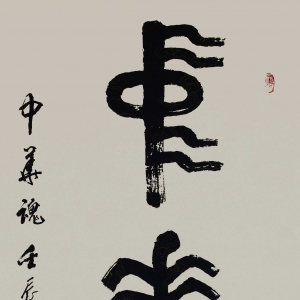 中
中華魂壬辰